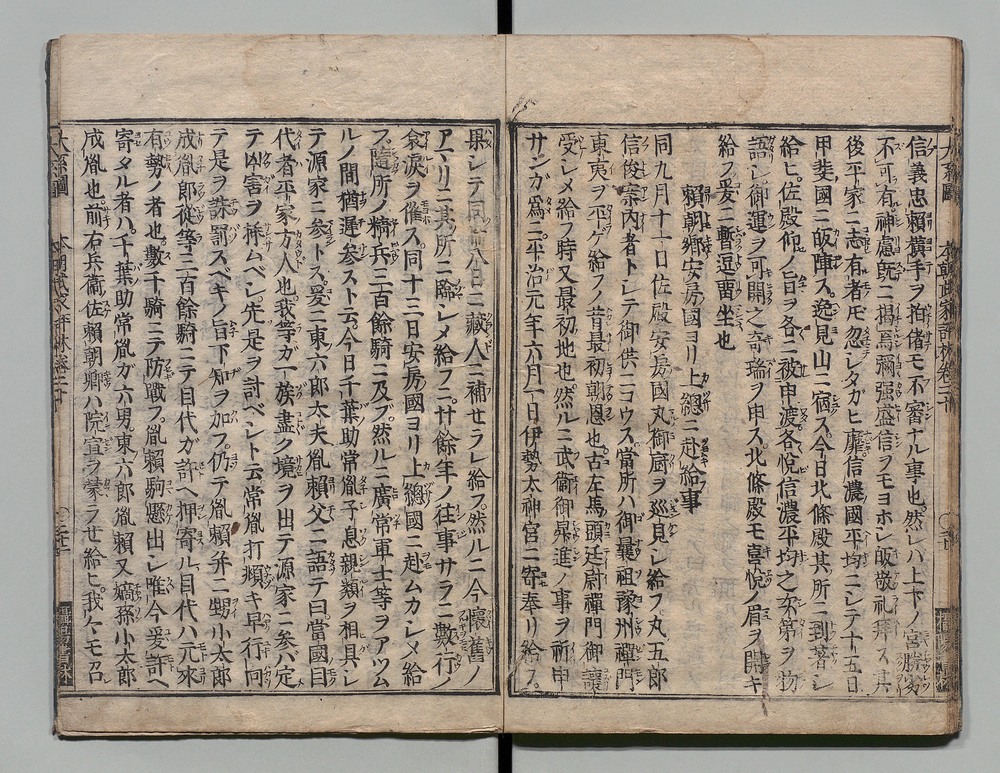 信義忠頼横手ヲ拍偖モ不審ナル事也然レハ上下ノ宮勝劣
不可有神慮既ニ揭焉彌强盛信ヲモヨホシ皈敬礼拜ス其
後平家ニ志有者モ忽シタガヒ靡信濃國平均ニシテ十五日
甲斐國ニ皈陣ス逸見山ニ宿ス今日北條殿其所ニ到著シ
給ヒ佐殿仰ノ旨ヲ各ニ被申渡各悦信濃平均之次第ヲ物
語シ御運ヲ可開之奇瑞ヲ申ス北條殿モ喜悦ノ眉ヲ開キ
給フ爰ニ暫逗畱坐也
頼朝卿安房國ヨリ上總ニ赴給事
同九月十一日佐殿安房國丸御厨ヲ巡見シ給フ丸五郎
信俊案内者トシテ御供ニコウス當所ハ御曩祖豫州禪門
東夷ヲ平ゲ給フノ昔最初朝恩也古左馬頭廷尉禪門御讓
受シメ給フ時又最初地也然ルニ武衞御昇進ノ事ヲ祈申
サンガ爲ニ平治元年六月一日伊勢太神宮ニ寄奉リ給フ
果シテ同廿八日ニ藏人ニ補せラレ給フ然ルニ今懷舊ノ
アマリニ其所ニ臨シメ給フニ廿餘年ノ往事サラニ數行ノ
哀淚ヲ催ス同十三日安房國ヨリ上總國ニ赴ムカシメ給
フ隨所ノ精兵三百餘騎ニ及ブ然ルニ廣常軍士等ヲアツム
ルノ間猶遲參スト云今日千葉助常胤子息親類ヲ相具シ
テ源家ニ參トス爰ニ東六郎太夫胤頼父ニ語テ曰當國目
代者平家方人也我等ガ一族盡ク境ヲ出テ源家ニ參バ定
テ凶害ヲ插ムベシ先是ヲ討ベシト云常胤打頷キ早行向
テ是ヲ誅罰スベキノ旨下知ヲ加フ仍テ胤頼幷ニ甥小太郎
成胤郎從等三百餘騎ニテ目代ガ許ヘ押寄ル目代ハ元來
有勢ノ者也數千騎ニテ防戰フ胤頼駒懸出シ唯今爰許ヘ
寄タル者ハ千葉助常胤ガ六男東六郎胤頼又嫡孫小太郎
成胤也前右兵衞佐頼朝卿ハ院宣ヲ蒙ラせ給ヒ我々モ召